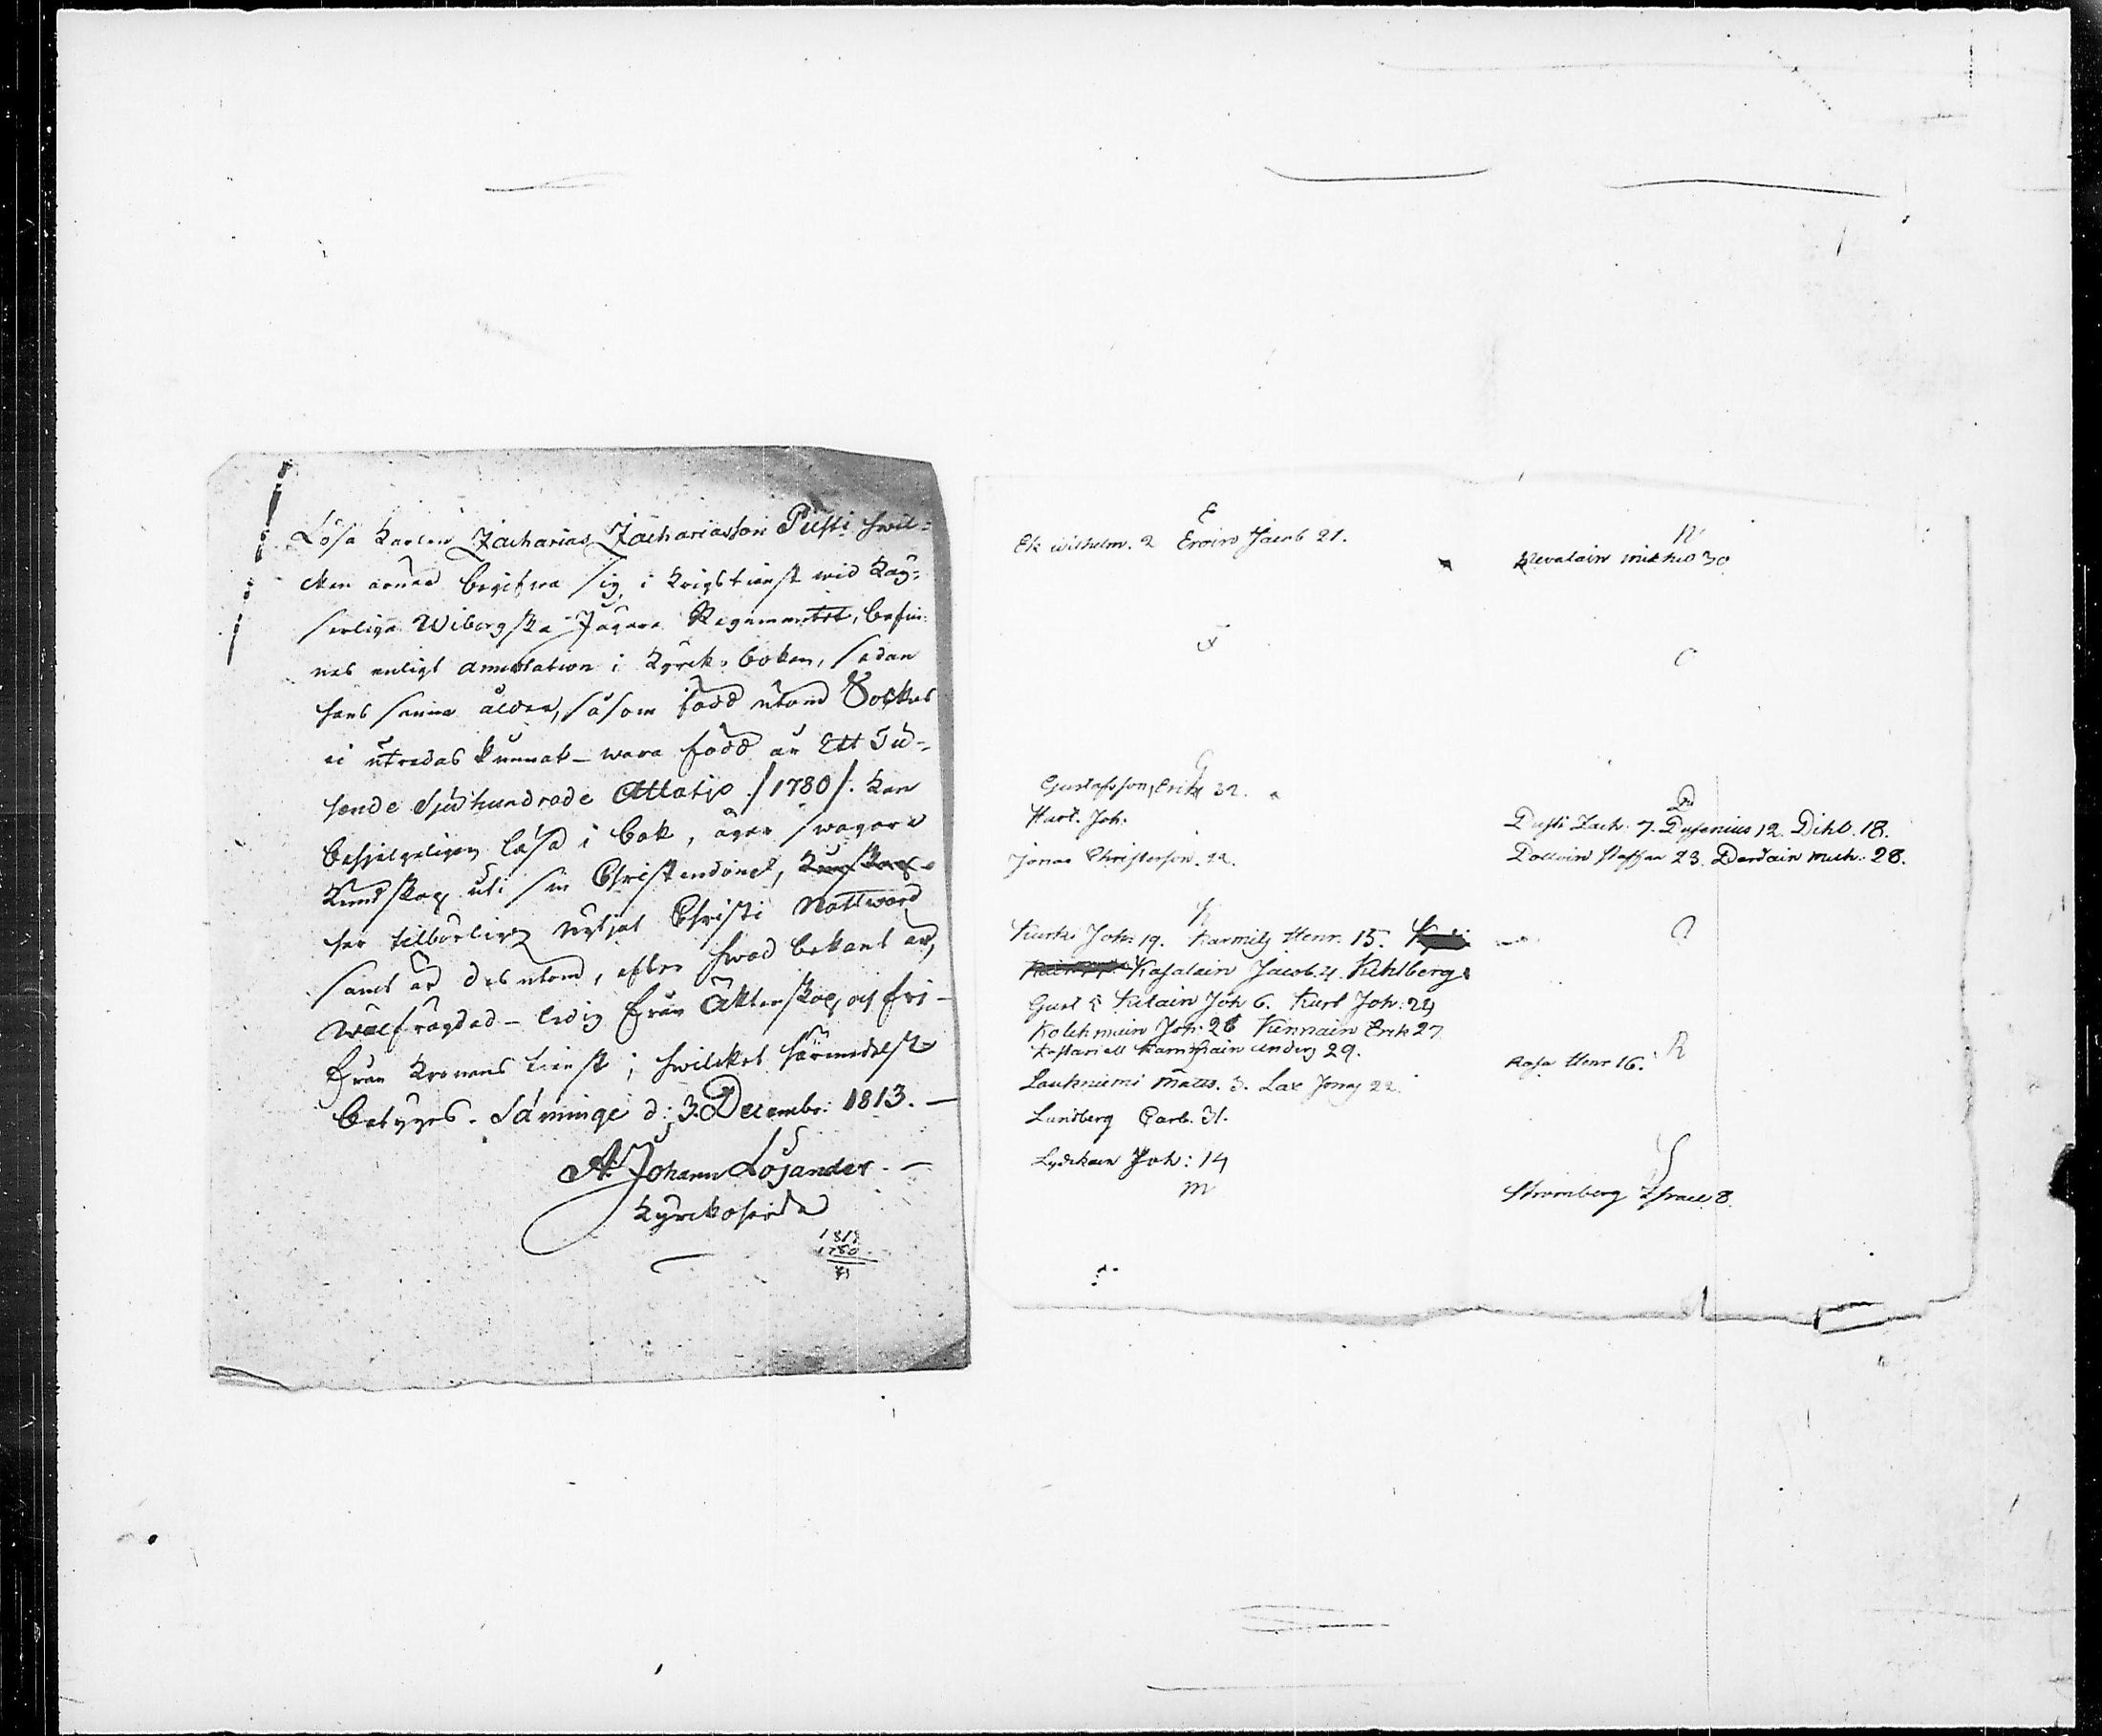 Lösa Karlen Zacharias Zachariasson Pusti hvil-
cken ärnar begifva sig i Krigstienst vid Kay-
serliga Wiborgska Jägare Regementet, befin-
nes enligt annotation i Kyrckoboken, sedan
hans sanna ålder, såsom född utom Socknen
ei utredas kunnat – vara född år Ett Tu-
sende Sjuhundrade Åttatio /1780/. Kan
behjelpeligen läsa i bok, äger svagare
Kundskap uti sin Christendom,
har tilbörligen nyttjat Christi Nattward
samt är dessutom, efter hvad bekant är,
wälfrägdad – ledig från Äktenskap och fri
från Kronans tienst; hvilcket härmedelst
betyges. Säminge d: 3 Decembr: 1813. –
Johann Lojander. –
Kyrckoherde
1813
1780
E
Ek Wilhelm. 2 Eroin Jacob 21.
F
G
Gustafsson, Erik 32.
Hart. Joh.
Jonas Christerson. 22.
K
Kurki Joh: 19. Karmitz Henr. 15.
Kasalain Jacob. 4. Kihlberg
Gust 5 Kilain Joh 6. Kurt Joh: 24
Kolehmain Joh: 26 Kinnain Erik 27
Karnhain Anders 29.
Laukniemi Matts. 3. Lax Jonas 22.
Lundberg Carl. 31.
Lydikain Joh: 14
M
N
Nevalain Michel 30
O
P
Pusti Zach: 7. Pysenius 12. Pihl. 18.
Pollvin Staffan 23. Pardain Mich: 28.
Q
R
Rasa Henr 16.
S
Stromberg Israel 8.